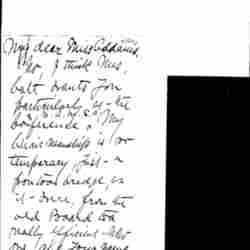 My dear Miss Addams,
No, I think Mrs.
Catt wants you
particularly as - the
Conference. My
chairmanship is so
temporary just - a
pontoon bridge, as
it - were, from the
old Board to a
really efficient
one